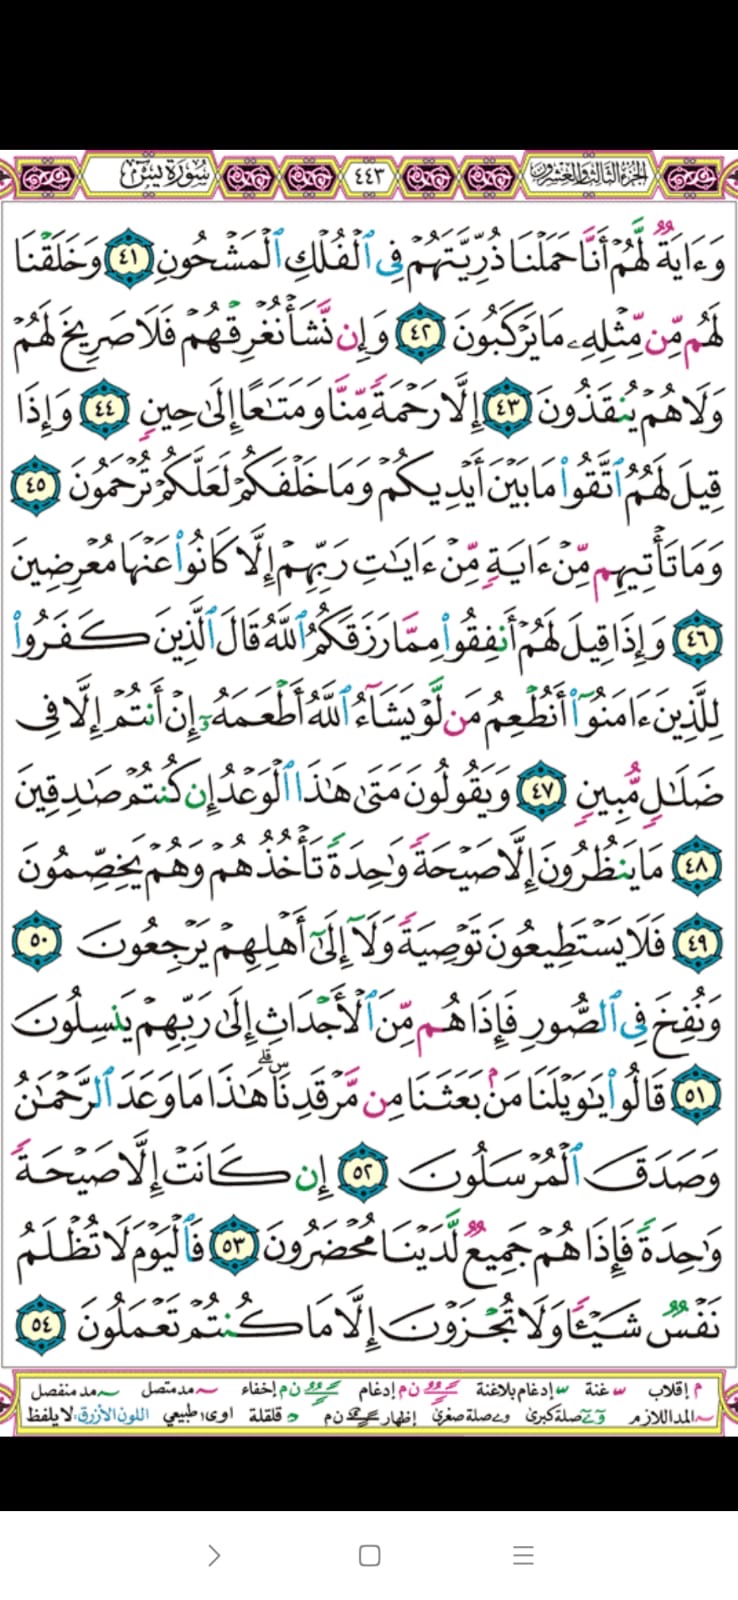 سُورَةُ يسٓ ٤٤٣ الجُزءُ الثَّالِثُ وَالعِشرُون
وَءَايَةٌ لَّهُمْ أَنَّا حَمَلْنَا ذُرِّيَّتَهُمْ فِى ٱلْفُلْكِ ٱلْمَشْحُونِ ٤١ وَخَلَقْنَا
لَهُم مِّن مِّثْلِهِۦ مَا يَرْكَبُونَ ٤٢ وَإِن نَّشَأْ نُغْرِقْهُمْ فَلَا صَرِيخَ لَهُمْ
وَلَا هُمْ يُنقَذُونَ ٤٣ إِلَّا رَحْمَةً مِّنَّا وَمَتَـٰعًا إِلَىٰ حِينٍ ٤٤ وَإِذَا
قِيلَ لَهُمُ ٱتَّقُوا۟ مَا بَيْنَ أَيْدِيكُمْ وَمَا خَلْفَكُمْ لَعَلَّكُمْ تُرْحَمُونَ ٤٥
وَمَا تَأْتِيهِم مِّنْ ءَايَةٍ مِّنْ ءَايَـٰتِ رَبِّهِمْ إِلَّا كَانُوا۟ عَنْهَا مُعْرِضِينَ
٤٦ وَإِذَا قِيلَ لَهُمْ أَنفِقُوا۟ مِمَّا رَزَقَكُمُ ٱللَّهُ قَالَ ٱلَّذِينَ كَفَرُوا۟
لِلَّذِينَ ءَامَنُوٓا۟ أَنُطْعِمُ مَن لَّوْ يَشَآءُ ٱللَّهُ أَطْعَمَهُۥٓ إِنْ أَنتُمْ إِلَّا فِى
ضَلَـٰلٍ مُّبِينٍ ٤٧ وَيَقُولُونَ مَتَىٰ هَـٰذَا ٱلْوَعْدُ إِن كُنتُمْ صَـٰدِقِينَ
٤٨ مَا يَنظُرُونَ إِلَّا صَيْحَةً وَٰحِدَةً تَأْخُذُهُمْ وَهُمْ يَخِصِّمُونَ
٤٩ فَلَا يَسْتَطِيعُونَ تَوْصِيَةً وَلَآ إِلَىٰٓ أَهْلِهِمْ يَرْجِعُونَ ٥٠
وَنُفِخَ فِى ٱلصُّورِ فَإِذَا هُم مِّنَ ٱلْأَجْدَاثِ إِلَىٰ رَبِّهِمْ يَنسِلُونَ
٥١ قَالُوا۟ يَـٰوَيْلَنَا مَنۢ بَعَثَنَا مِن مَّرْقَدِنَا ۜ ۗ هَـٰذَا مَا وَعَدَ ٱلرَّحْمَـٰنُ
وَصَدَقَ ٱلْمُرْسَلُونَ ٥٢ إِن كَانَتْ إِلَّا صَيْحَةً
وَٰحِدَةً فَإِذَا هُمْ جَمِيعٌ لَّدَيْنَا مُحْضَرُونَ ٥٣ فَٱلْيَوْمَ لَا تُظْلَمُ
نَفْسٌ شَيْـًٔا وَلَا تُجْزَوْنَ إِلَّا مَا كُنتُمْ تَعْمَلُونَ ٥٤
م إقلاب غنة إدغام بلاغنة ن م إدغام ن م إخفاء مد متصل مد منفصل
المد اللازم صلة كبرى صلة صغرى إظهار ن م قلقلة اوى: طبيعي اللون الأزرق: لا يلفظ